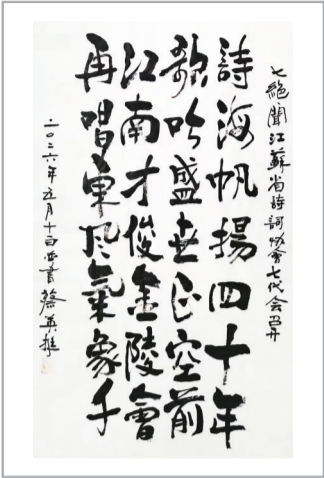 七絕聞江蘇省詩詞協會七代會召开
詩海帆揚四十年
歌吟盛世正空前
江南才俊金陵會
再唱東風氣象千
二〇二六年五月十日並書蔡英挺